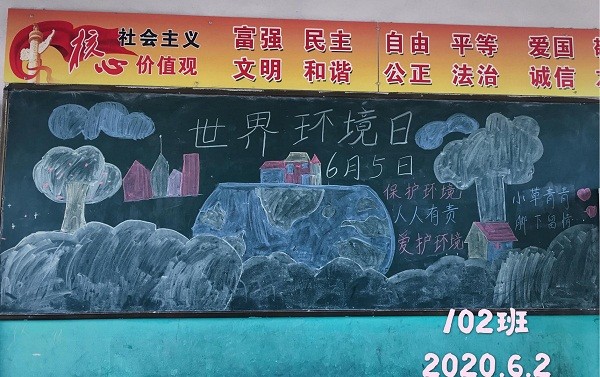 核心 社会主义
价值观
富强 民主 自由 平等 爱国
文明 和谐 公正 法治 诚信
世界环境日
6月5日
保护环境
人人有责
爱护环境
小草青青
脚下留情
102班
2020.6.2